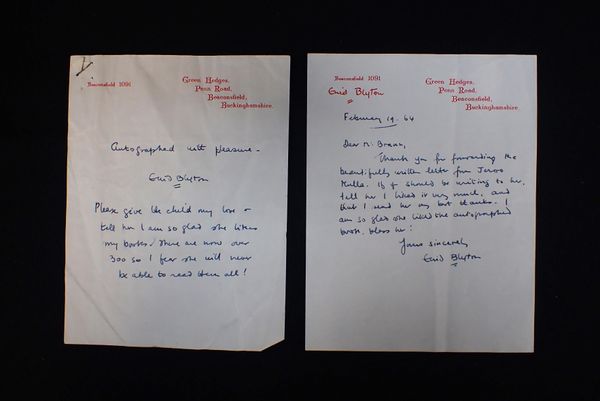 Beaconsfield 1091
Green Hedges,
Penn Road,
Beaconsfield,
Buckinghamshire.
Autographed with pleasure -
Enid Blyton
Please give the child my love &
tell her I am so glad she likes
my books. There are now over
300 so I fear she will never
be able to read them all!
Beaconsfield 1091
Green Hedges,
Penn Road,
Beaconsfield,
Buckinghamshire.
Enid Blyton
February 19. 64
Dear Mr.
Thank you for forwarding the
beautifully written letter from
If you should be writing to her,
tell her I liked it very much, and
that I send her my best thanks. I
am so glad she liked the autographed
book, bless her!
Yours sincerely,
Enid Blyton